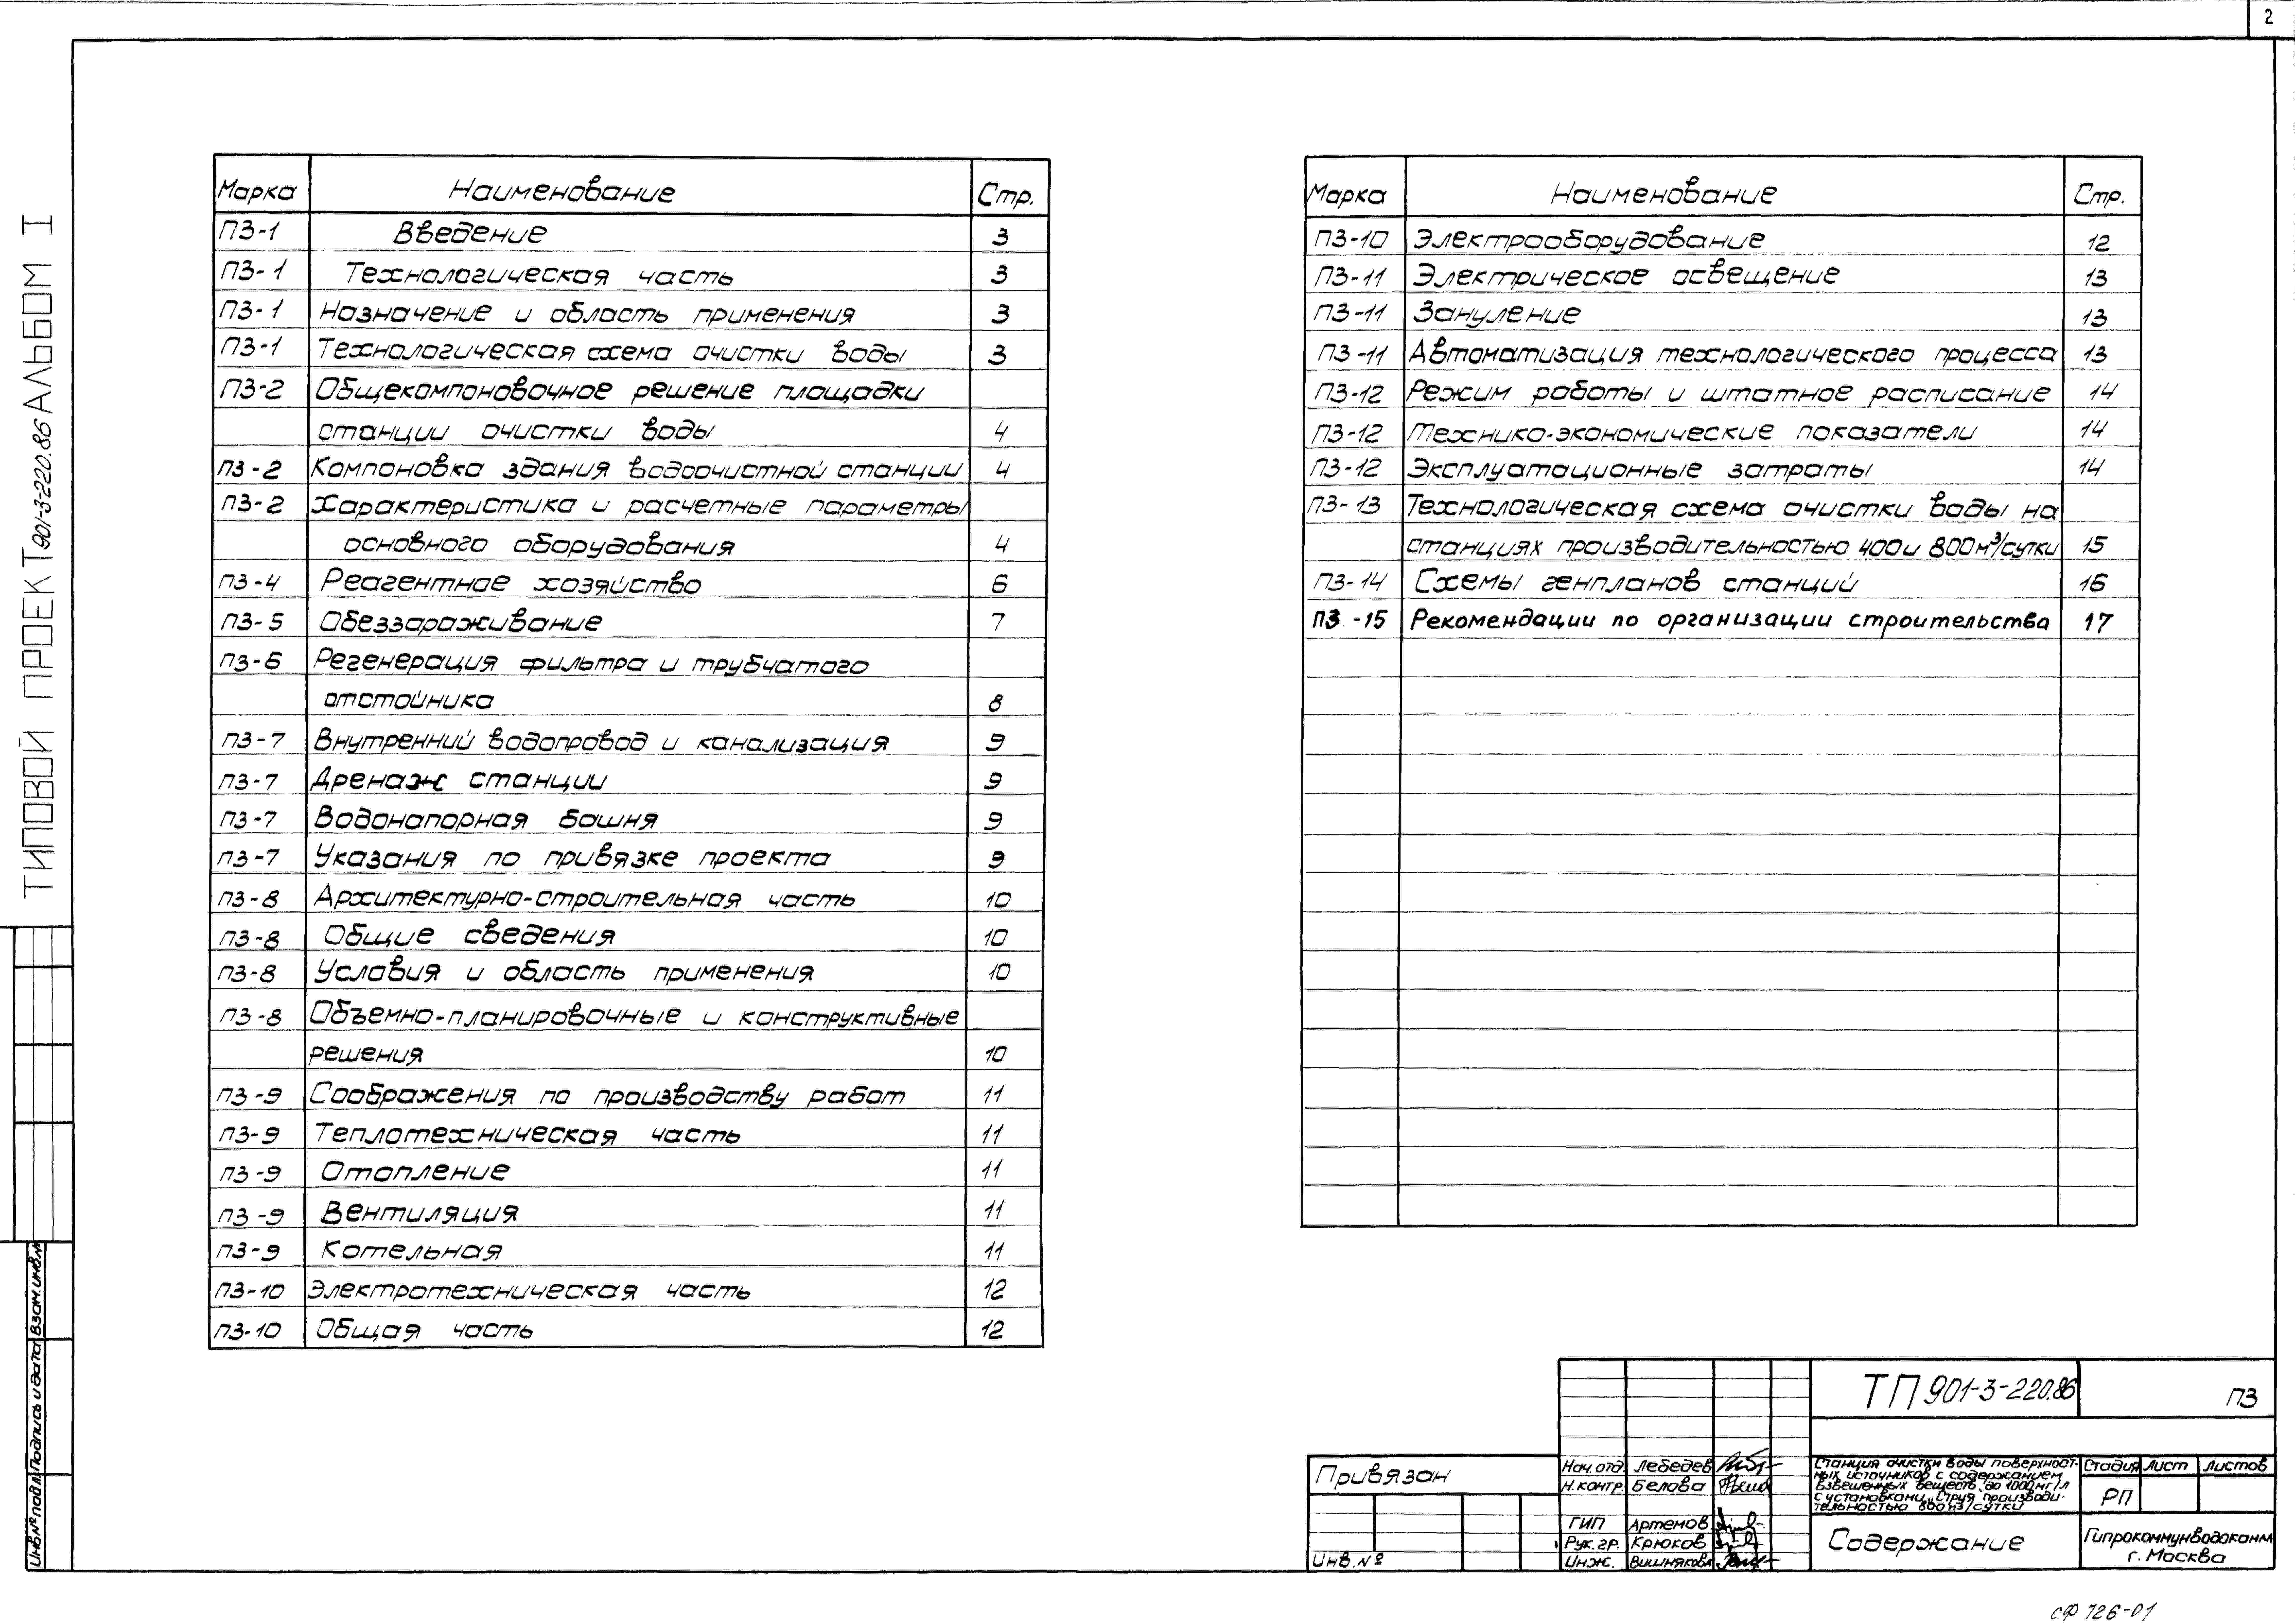 2
ТИПОВОЙ ПРОЕКТ 901-3-220.86 АЛЬБОМ I
Марка Наименование Стр.
ПЗ-1 Введение 3
ПЗ-1 Технологическая часть 3
ПЗ-1 Назначение и область применения 3
ПЗ-1 Технологическая схема очистки воды 3
ПЗ-2 Общекомпоновочное решение площадки
станции очистки воды 4
ПЗ-2 Компоновка здания водоочистной станции 4
ПЗ-2 Характеристика и расчетные параметры
основного оборудования 4
ПЗ-4 Реагентное хозяйство 6
ПЗ-5 Обеззараживание 7
ПЗ-6 Регенерация фильтра и трубчатого
отстойника 8
ПЗ-7 Внутренний водопровод и канализация 9
ПЗ-7 Дренаж станции 9
ПЗ-7 Водонапорная башня 9
ПЗ-7 Указания по привязке проекта 9
ПЗ-8 Архитектурно-строительная часть 10
ПЗ-8 Общие сведения 10
ПЗ-8 Условия и область применения 10
ПЗ-8 Объемно-планировочные и конструктивные
решения 10
ПЗ-9 Соображения по производству работ 11
ПЗ-9 Теплотехническая часть 11
ПЗ-9 Отопление 11
ПЗ-9 Вентиляция 11
ПЗ-9 Котельная 11
ПЗ-10 Электротехническая часть 12
ПЗ-10 Общая часть 12
Марка Наименование Стр.
ПЗ-10 Электрооборудование 12
ПЗ-11 Электрическое освещение 13
ПЗ-11 Зануление 13
ПЗ-11 Автоматизация технологического процесса 13
ПЗ-12 Режим работы и штатное расписание 14
ПЗ-12 Технико-экономические показатели 14
ПЗ-12 Эксплуатационные затраты 14
ПЗ-13 Технологическая схема очистки воды на
станциях производительностью 400 и 800м³/сутки 15
ПЗ-14 Схемы генпланов станций 16
ПЗ-15 Рекомендации по организации строительства 17
Инв.№ подл. Подпись и дата Взам.инв.№
Привязан
Инв.№
Нач.отд. Лебедев
Н.контр. Белова
ГИП Артемов
Рук.гр. Крюков
Инж. Вишнякова
ТП 901-3-220.86 ПЗ
Станция очистки воды поверхност-
ных источников с содержанием
взвешенных веществ до 1000мг/л
с установками „Струя производи-
тельностью 800 м3/сутки
Стадия Лист Листов
РП
Содержание
Гипрокоммунводоканал
г. Москва
сф 726-01